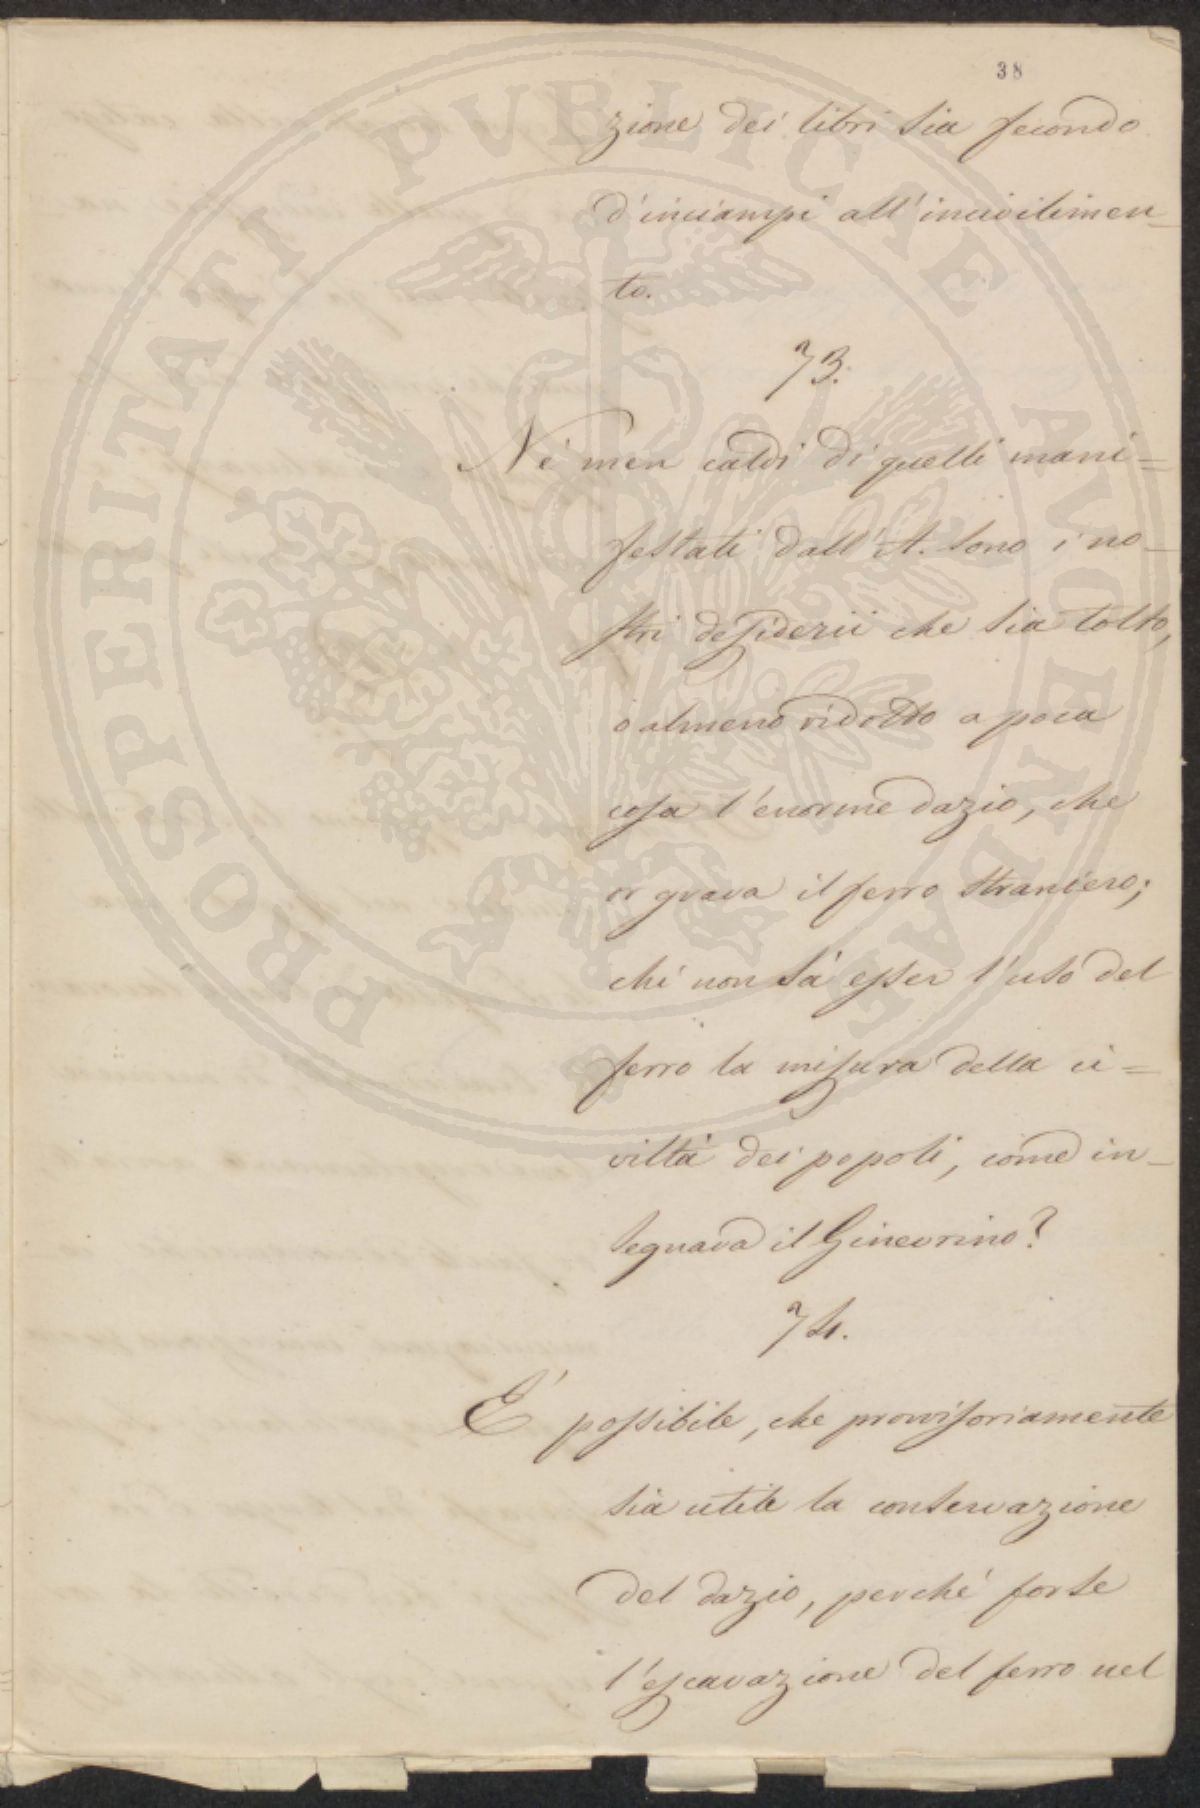 38
zione dei libri sia fecondo
d'inciampi all'incivilimen-
to.
73.
Nè men caldi di quelli mani=
festati dall'A. sono i no-
stri desiderii che sia tolto,
o almeno ridotto a poca
cosa l'enorme dazio, che
or grava il ferro straniero;
chi non sà esser l'uso del
ferro la misura della ci=
viltà dei popoli, come in-
segnava il Ginevrino?
74.
È possibile, che provvisoriamente
sia utile la conservazione
del dazio, perché forse
l'escavazione del ferro nel
PROSPERITATI PVBLICAE AVGENDAE